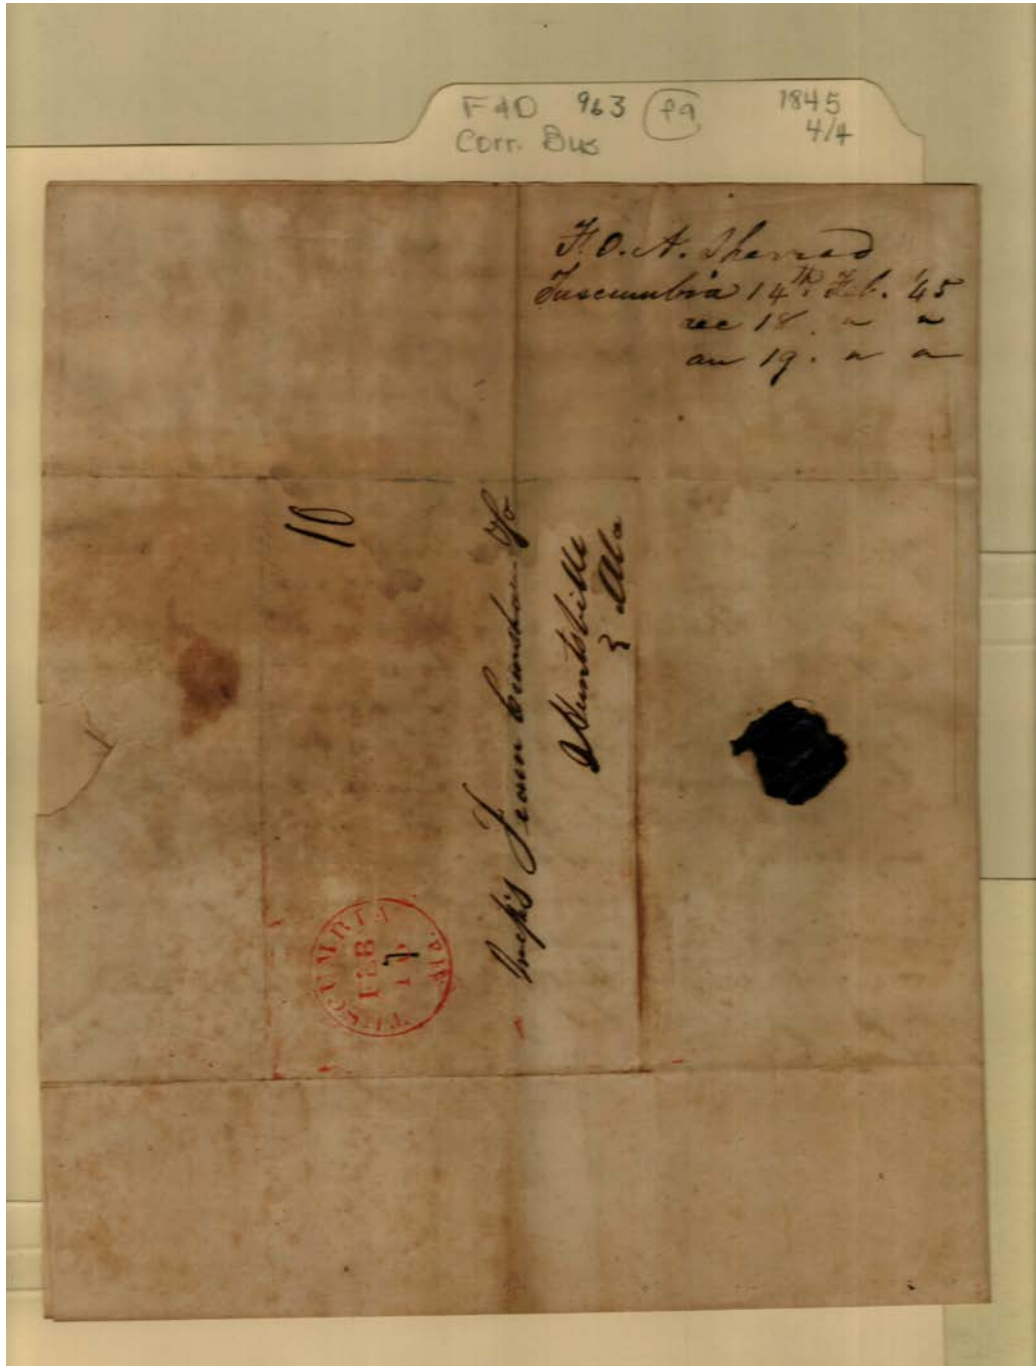 F&D 963 (f9) 1845
Corr. Bus 4/4
F. O. A. Sherrod
Tuscumbia 14th Feb. '45
rec 18. " "
an 19. " "
10
Mess's Fearn Crenshaw &Co
Huntsville
Ala
TUSCUMBIA
FEB
Ala.